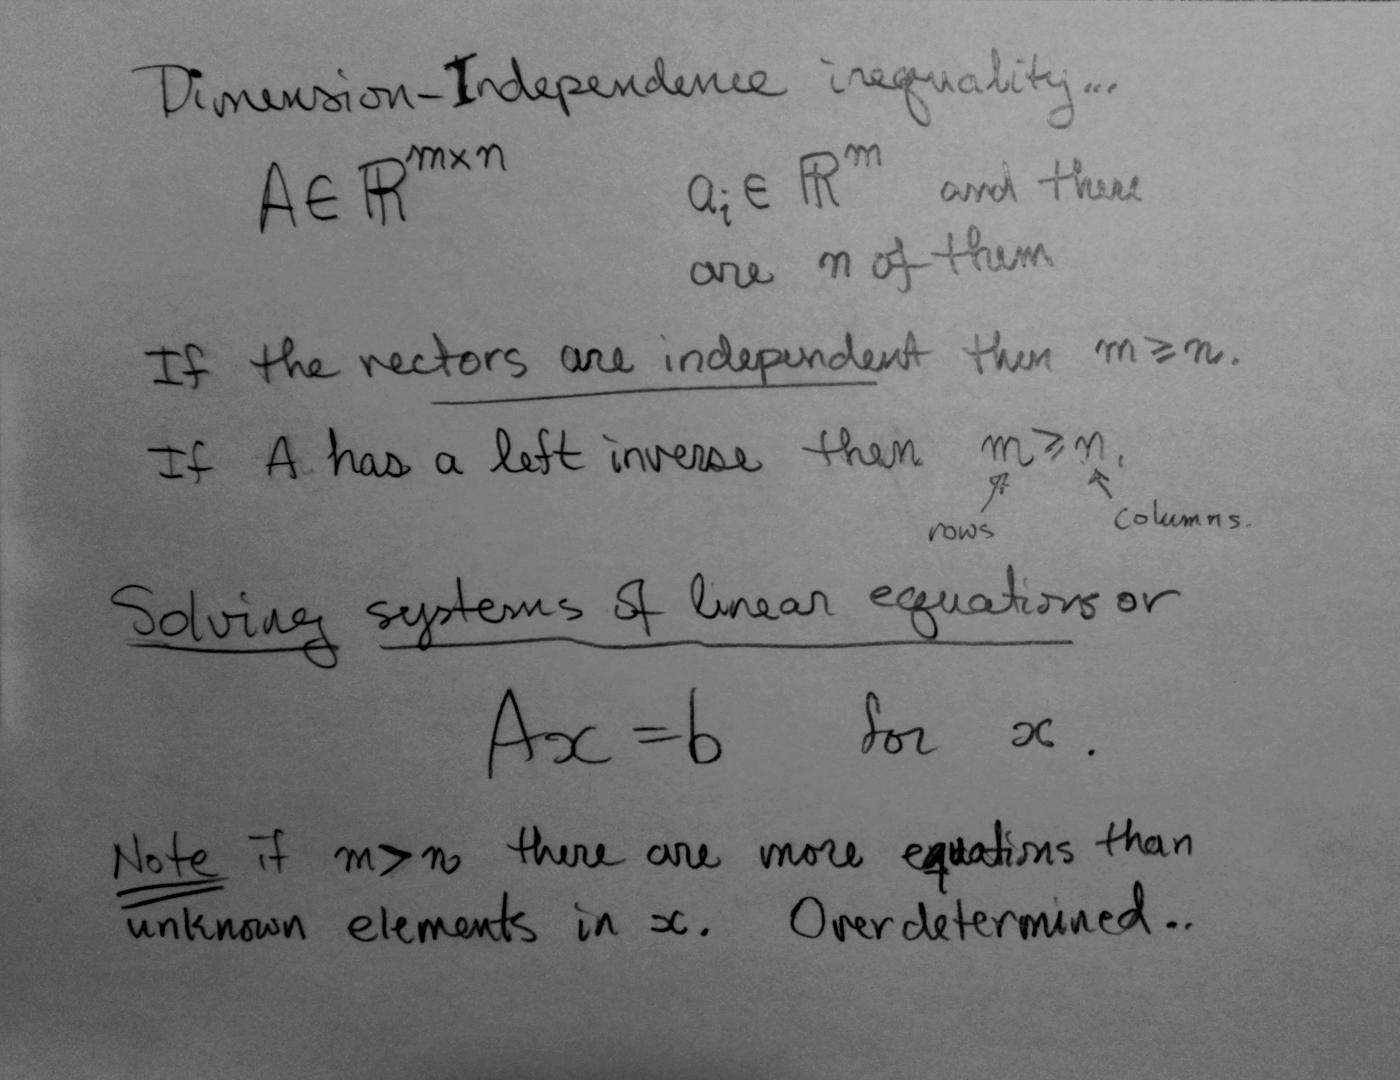 Dimension-Independence inequality...
A ∈ ℝ^{m×n} a_i ∈ ℝ^m and there
are n of them
If the vectors are independent then m ≥ n.
If A has a left inverse then m ≥ n.
rows columns.
Solving systems of linear equations or
Ax = b for x.
Note if m > n there are more equations than
unknown elements in x. Overdetermined..